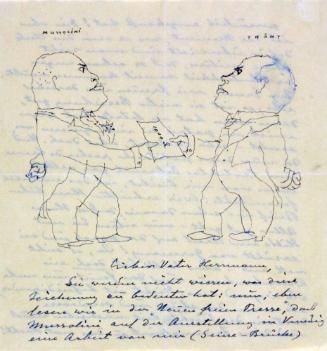 MUSSOLINI
TRÖST
Lieber Vater Herrmann,
Sie werden nicht wissen, was diese
Zeichnung zu bedeuten hat: nun, eben
lesen wir in der Neuen freien Presse, daß
Mussolini auf der Ausstellung in Venedig
eine Arbeit von mir (Seine-Brücke)